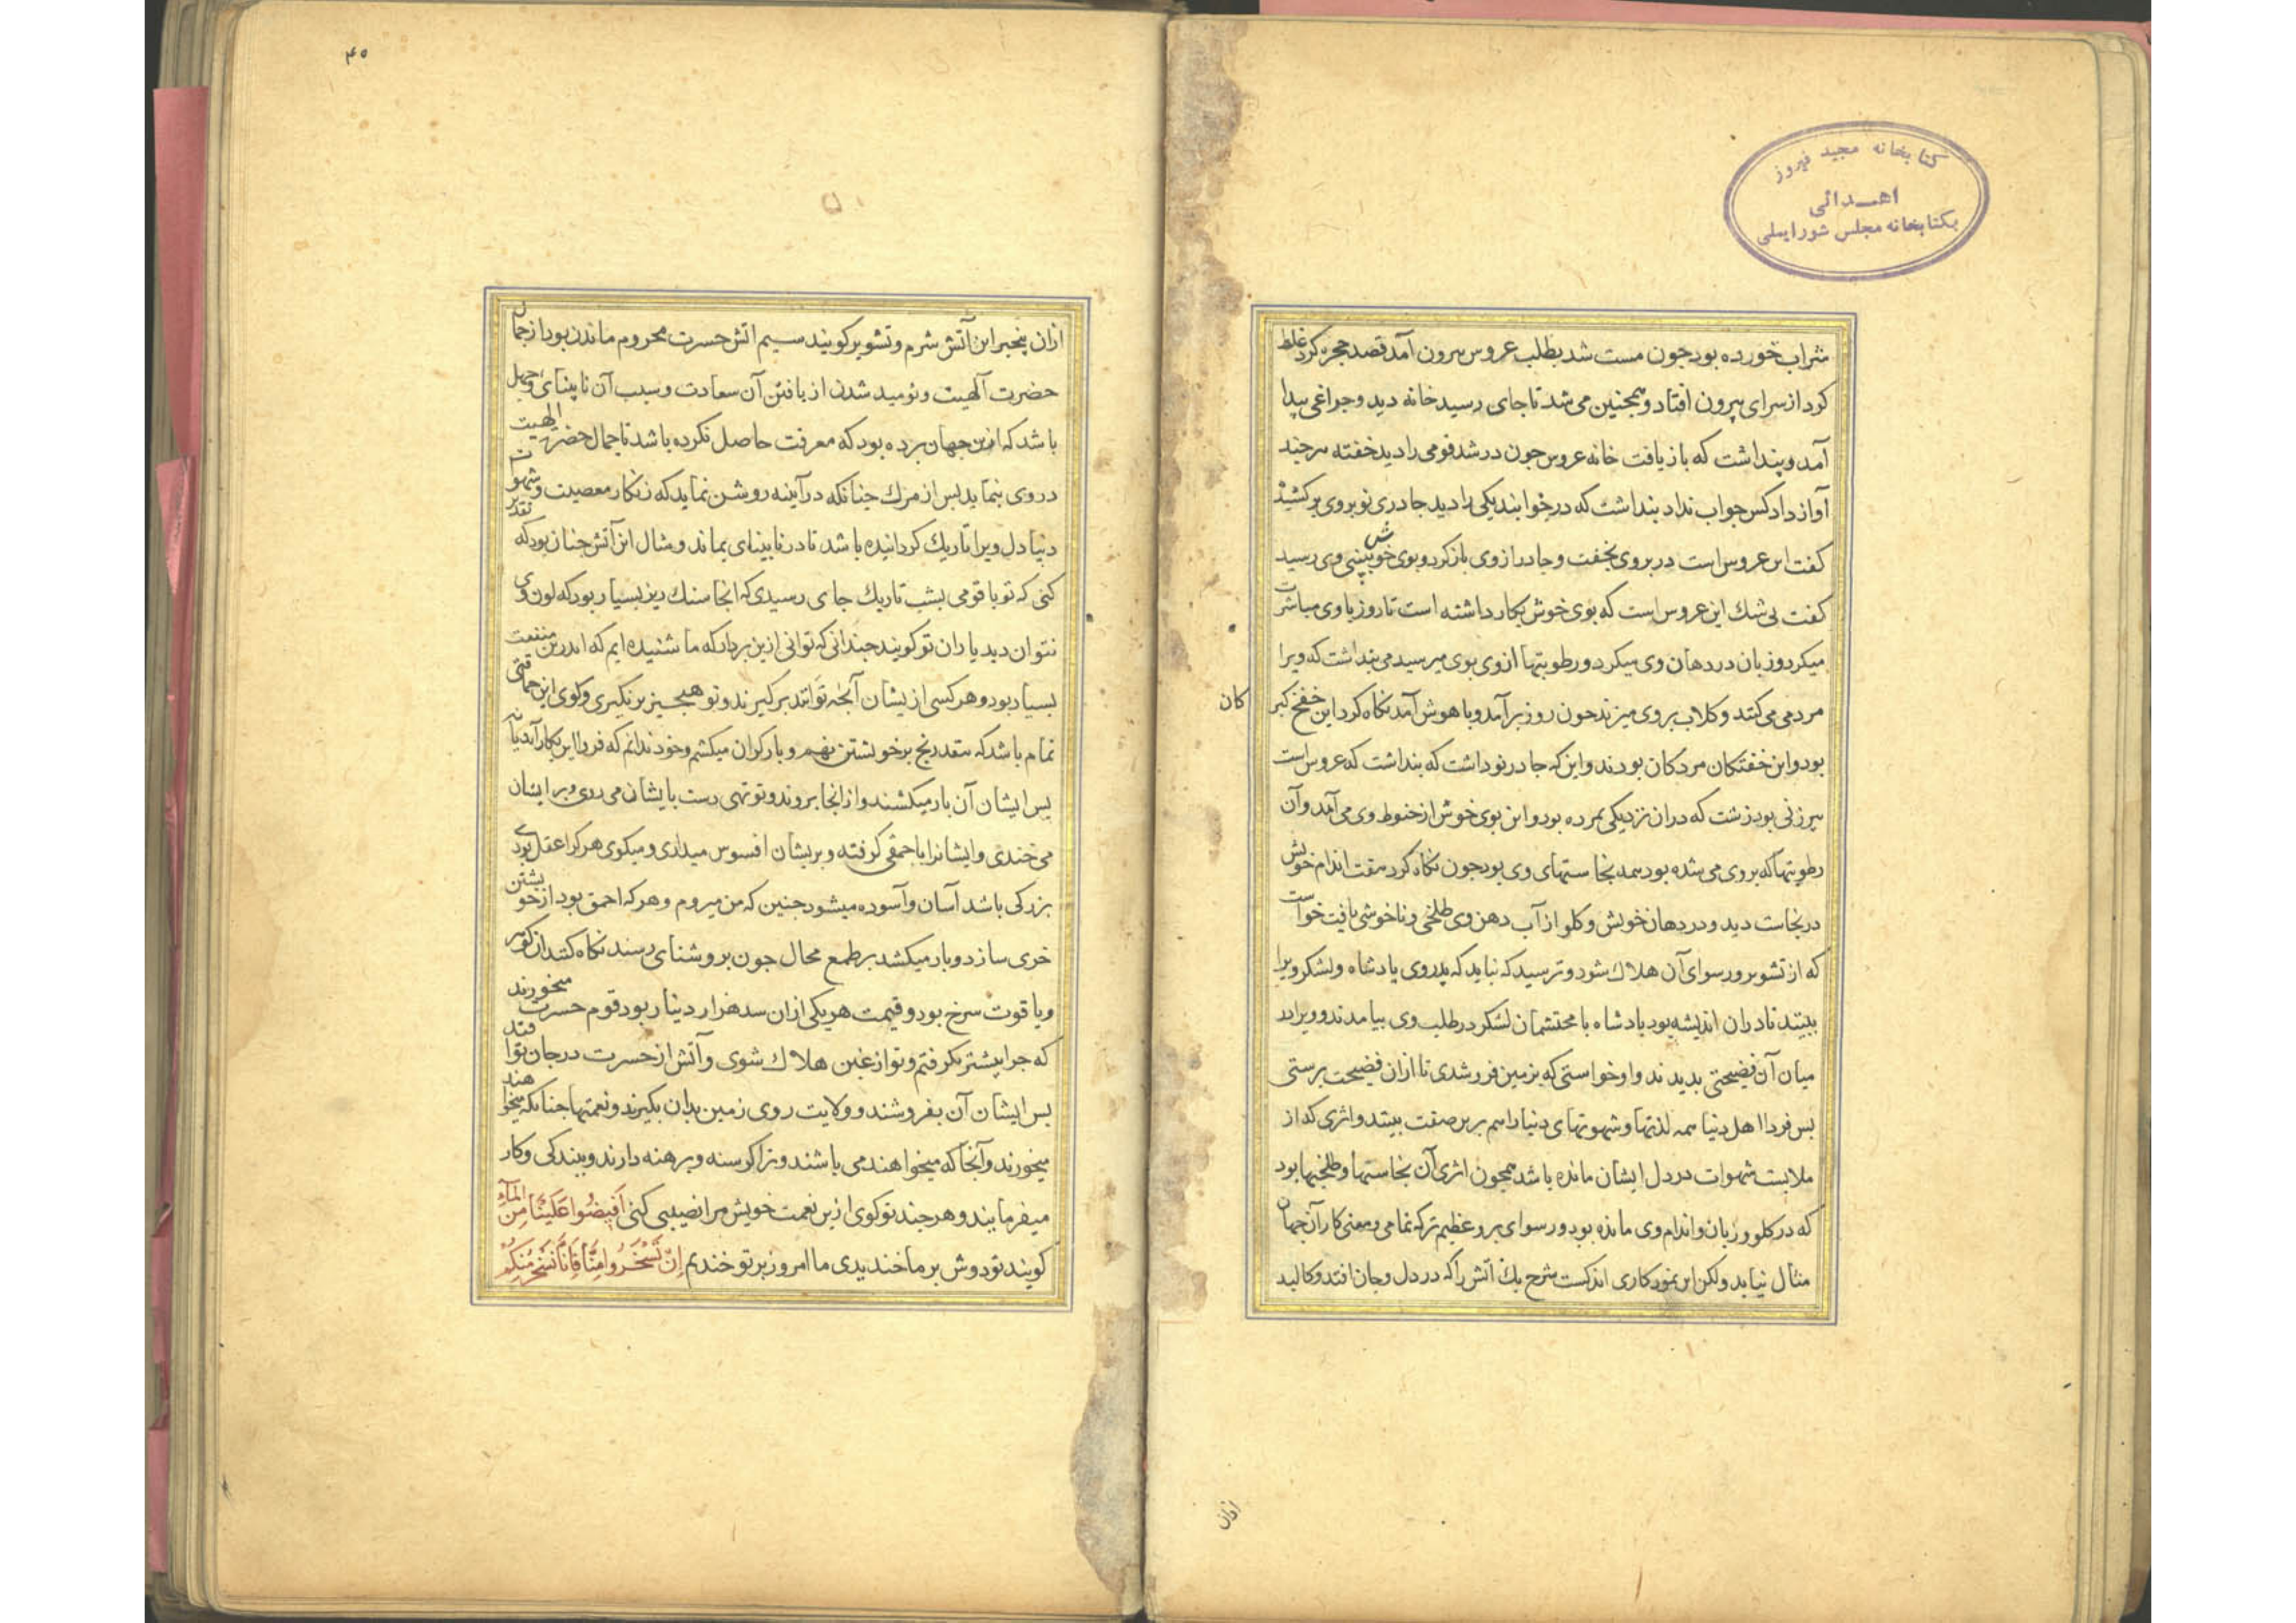 کتابخانه مجید فیروز
اهدائی
بکتابخانه مجلس شورایملی
شراب خورده بود جون مست شد بطلب عروس بیرون آمد قصد حجره کرد غلط
کرد از سرای بیرون افتاد و همجنین می شد تا جای رسید خانه دید و جراغی پیدا
آمد و پنداشت که باز یافت خانه عروس جون در شد قومی را دید خفته هر جند
آواز داد کس جواب نداد بنداشت که در خوابند یکی را دید جادری نو بروی بر کشیده
کفت این عروس است در بروی بخفت و جادر از وی باز کرد و بوی خوش ببینی وی رسید
کفت بی شک این عروس است که بوی خوش بکار داشته است تا روز با وی مباشرت
میکرد و زبان در دهان وی میکرد و رطوبتها از وی بوی میرسید می بنداشت که ویرا
مردمی می کند و کلاب بروی میزند جون روز برآمد و با هوش آمد نکاه کرد این خفخ کبر
کان
بود و این خفتکان مردکان بودند و این که جادر نو داشت که بنداشت که عروس است
پیرزنی بود زشت که در ان نزدیکی بمرده بود و این بوی خوش از حنوط وی می آمد و آن
رطوبتها که بروی می شده بود همه نجاستهای وی بود جون نکاه کرد هفت اندام خویش
در نجاست دید و در دهان خویش و کلو از آب دهن وی طلخی و ناخوشی یافت خواست
که از تشویر و رسوای آن هلاک شود و ترسید که نباید که پدر وی پادشاه و لشکر ویرا
ببیند تا در ان اندیشه بود پادشاه با محتشمان لشکر در طلب وی بیامدند و ویرا در
میان آن فضیحتی بدیدند و او خواستی که بزمین فرو شدی تا ازان فضیحت برستی
بس فردا اهل دنیا همه لذتها و شهوتهای دنیا را هم برین صفت بیند و اثری که از
ملابست شهوات در دل ایشان مانده باشد همجون اثری آن نجاستها و طلخیها بود
که در کلو و زبان و اندام وی مانده بود و رسوای برو عظیم تر که تمامی و معنی کار آن جهان
مثال نیاید ولکن این نمود کاری اندکست شرح یک اتش را که در دل و جان افتد و کالبد
ازان
۴۵
ازان بیخبر این آتش شرم و تشویر کویند سیم اتش حسرت محروم ماندن بود از جمال
حضرت آلهیت و نومید شدن از یافتن آن سعادت و سبب آن نابینای و جهل
باشد که ازین جهان برده بود که معرفت حاصل نکرده باشد تا جمال حضرت الهیت
در وی بنماید بس از مرک جنانکه در آینه روشن نماید که زنکار معصیت و شهوت
دنیا دل ویرا تاریک کردانیده باشد تا در نابینای بماند و مثال این آتش جنان بود که تقدیر
کنی که تو با قومی بشب تاریک جای رسیدی که انجا سنک ریز بسیار بود که لون وی
نتوان دید یاران تو کویند جندانی که توانی ازین بردار که ما شنیده ایم که اندرین منفعت
بسیار بود و هر کسی از یشان آنجه توانند برکیرند و تو هیج جیز برنکیری و کوی این حماقتی
تمام باشد که بنقد رنج بر خویشتن نهم و بار کران میکشم و خود ندانم که فردا این بکار آید یا نه
بس ایشان آن بار میکشند و از انجا بروند و تو تهی دست با یشان می روی و بر ایشان
می خندی و ایشانرا باحمقی کرفته و بریشان افسوس میداری و میکوی هر کرا عقل بود و
بزرکی باشد آسان و آسوده میشود جنین که من میروم و هر که احمق بود از خویشتن
خری سازد و بار میکشد بر طمع محال جون بروشنای رسند نکاه کنند ان کوهر
و یاقوت سرخ بود و قیمت هر یکی ازان سد هزار دینار بود قوم حسرت میخورند
که جرا بیشتر نکرفتم و تو از غبن هلاک شوی و آتش از حسرت در جان تو افتد
بس ایشان آن بفروشند و ولایت روی زمین بدان بکیرند و نعمتها جنانکه میخواهند
میخورند و آنجا که میخواهند می باشند و ترا کرسنه و برهنه دارند و بندکی و کار
میفرمایند و هر جند تو کوی ازین نعمت خویش مرا نصیبی کنی أَفِيضُوا عَلَيْنَا مِنَ الْمَآءِ
کویند تو دوش بر ما خندیدی ما امروز بر تو خندیم إِنْ تَسْخَرُوا مِنَّا فَإِنَّا نَسْخَرُ مِنكُمْ